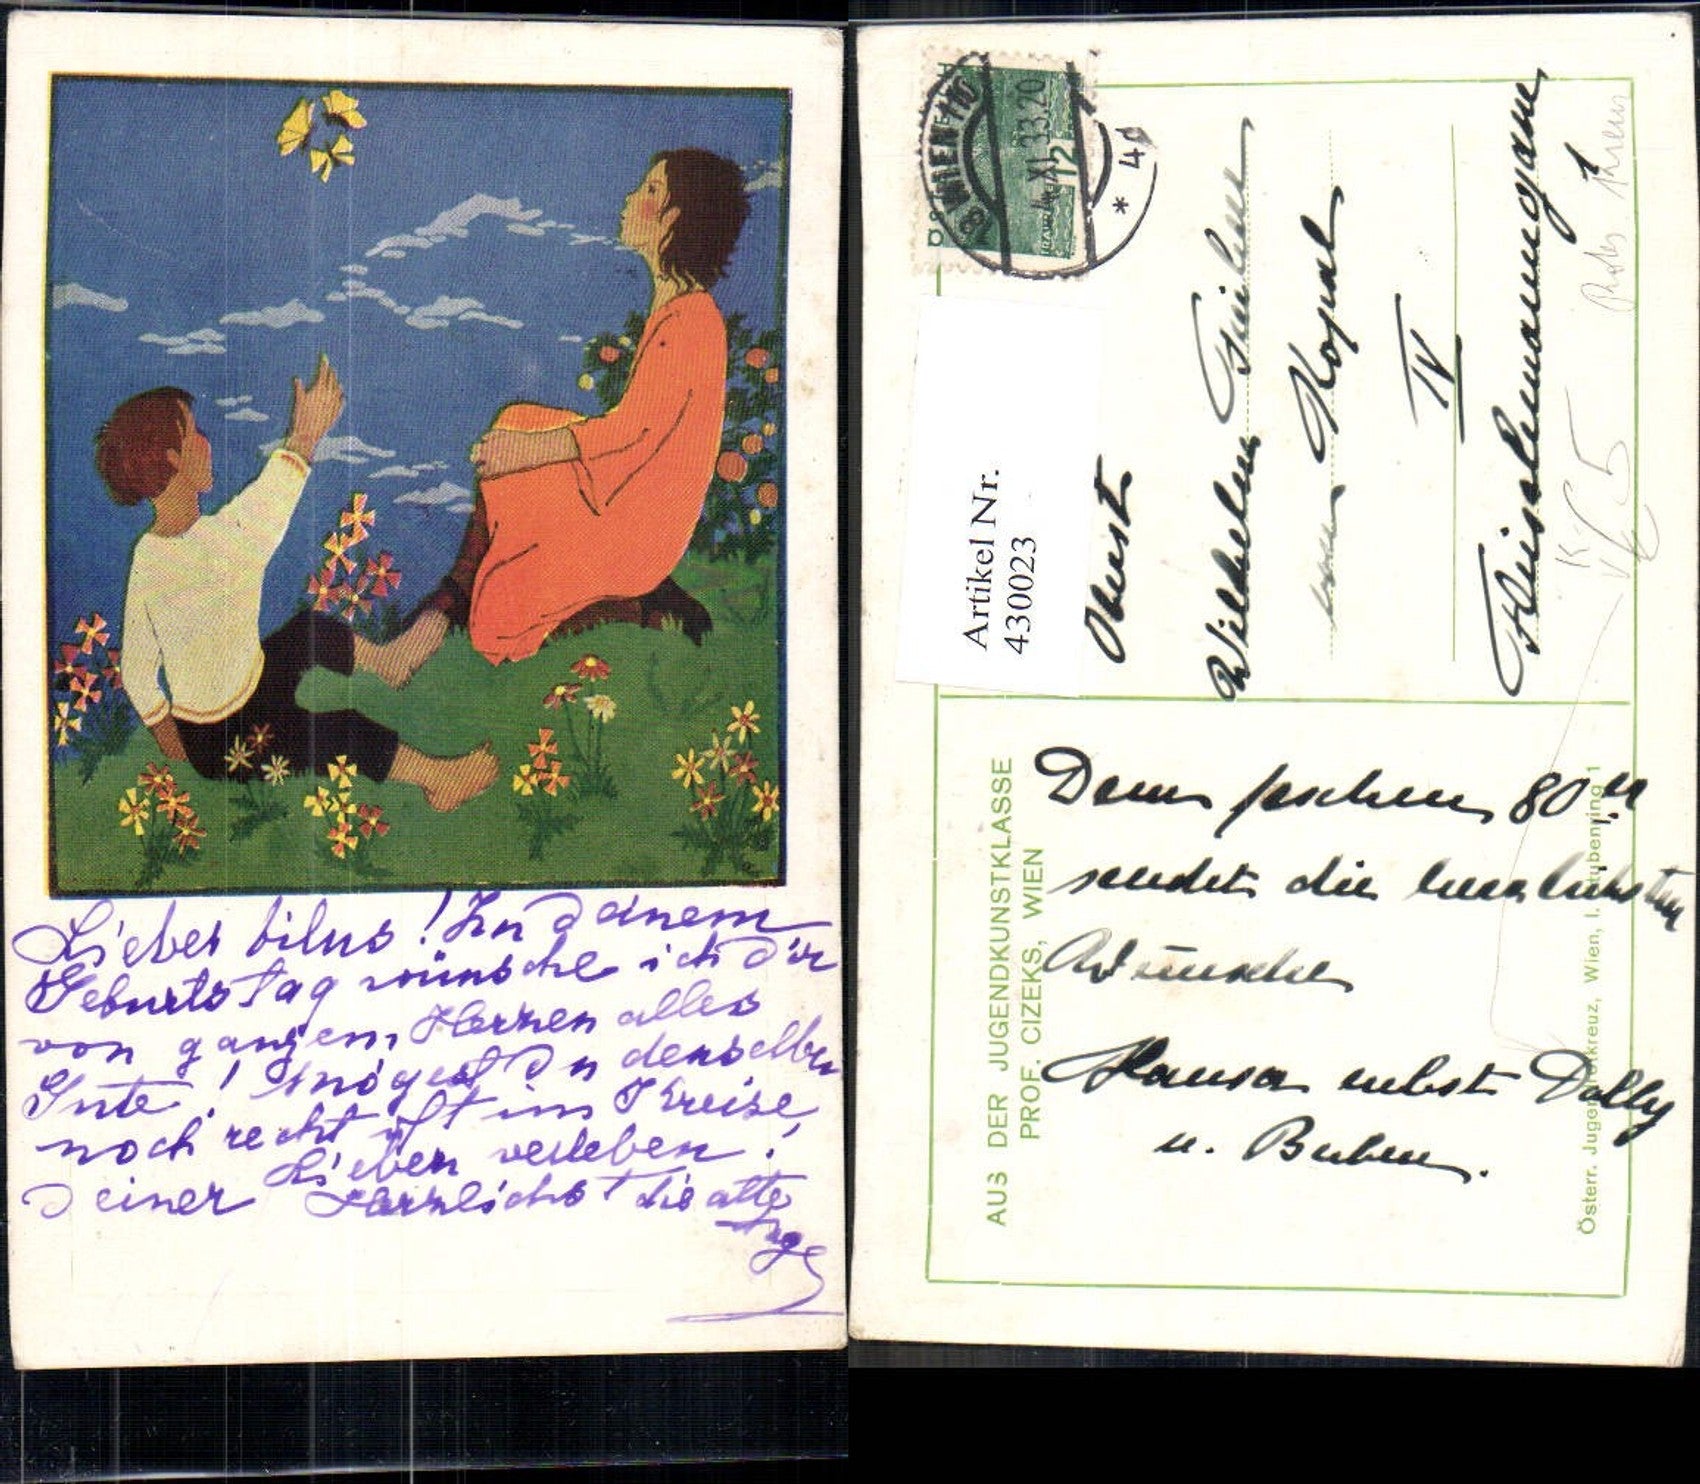 Lieber Vilus! Zu Deinem
Geburtstag wünsche ich Dir
von ganzem Herzen alles
Gute! Mögest Du denselben
noch recht oft im Kreise,
Deiner Lieben verleben!
Herzlichst die alte
WIEN 110
4.XI.33.20
* 4
12
Artikel Nr.
430023
Oberst
Wilhelm
von Kopal
IV
AUS DER JUGENDKUNSTKLASSE
PROF. CIZEKS, WIEN
Dem feschen 80er
sendet die herzlichsten
Wünsche
Hansa nebst Dolly
u. Buben.
Österr. Jugendrotkreuz, Wien, I. Stubenring 1